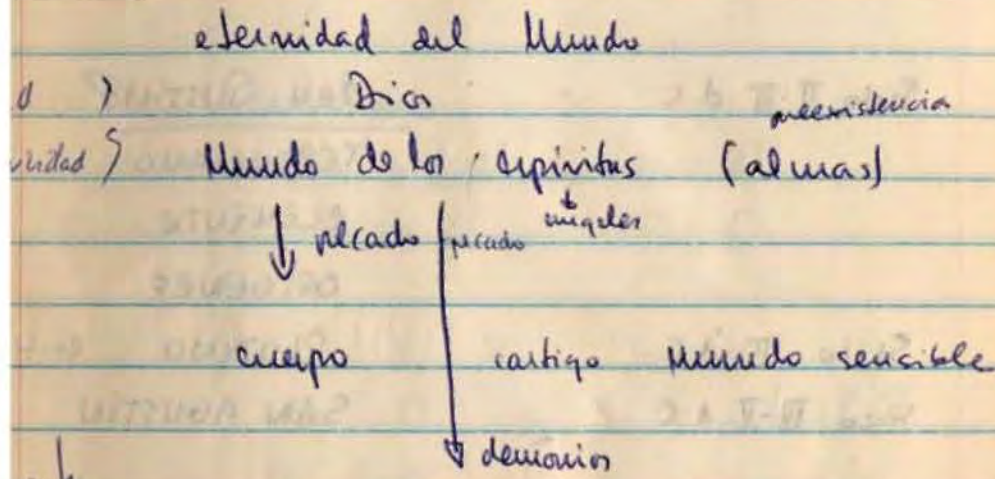 eternidad del Mundo
) Dios
preexistencia
) Mundo de los espíritus (almas)
ángeles
pecado pecado
cuerpo castigo Mundo sensible
demonios